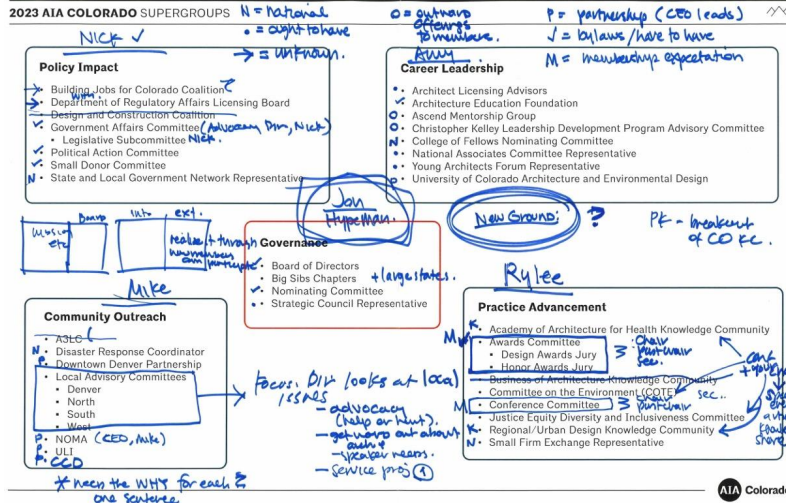 2023 AIA COLORADO SUPERGROUPS
N = national
• = ought to have
→ = unknown.
O = outward offerings to members.
P = partnership (CEO leads)
√ = bylaws/have to have
M = membership expectation
NICK ✓
Policy Impact
Building Jobs for Colorado Coalition
with
Department of Regulatory Affairs Licensing Board
Design and Construction Coalition
✓ Government Affairs Committee (Advocacy Dir, Nick)
• Legislative Subcommittee Nick.
✓ Political Action Committee
✓ Small Donor Committee
N • State and Local Government Network Representative
Amy
Career Leadership
• Architect Licensing Advisors
✓ Architecture Education Foundation
O Ascend Mentorship Group
O Christopher Kelley Leadership Development Program Advisory Committee
N College of Fellows Nominating Committee
• National Associates Committee Representative
• Young Architects Forum Representative
P University of Colorado Architecture and Environmental Design
Jon
Hypeman.
New Ground: ?
PK - breakout
of CO KC.
Board
int. ext.
mission
etc
through
Governance
✓ Board of Directors
Big Sibs Chapters + large states.
✓ Nominating Committee
• Strategic Council Representative
Mike
Community Outreach
• A3LC
N • Disaster Response Coordinator
P • Downtown Denver Partnership
Local Advisory Committees
• Denver
• North
• South
• West
P • NOMA (CEO, Mike)
P • ULI
P • CCD
* need the WHY for each
one sentence
Focus: Dir looks at local
issues
- advocacy
(help or hurt).
- get word out about
- speaker needs.
- service proj ①
Rylee
Practice Advancement
K. Academy of Architecture for Health Knowledge Community
M Awards Committee
• Design Awards Jury
• Honor Awards Jury
chair
past chair
sec.
Business of Architecture Knowledge Community
• Committee on the Environment (COTE)
sec..
M Conference Committee
chair
past chair
Justice Equity Diversity and Inclusiveness Committee
K. Regional/Urban Design Knowledge Community
N • Small Firm Exchange Representative
AIA Colorado